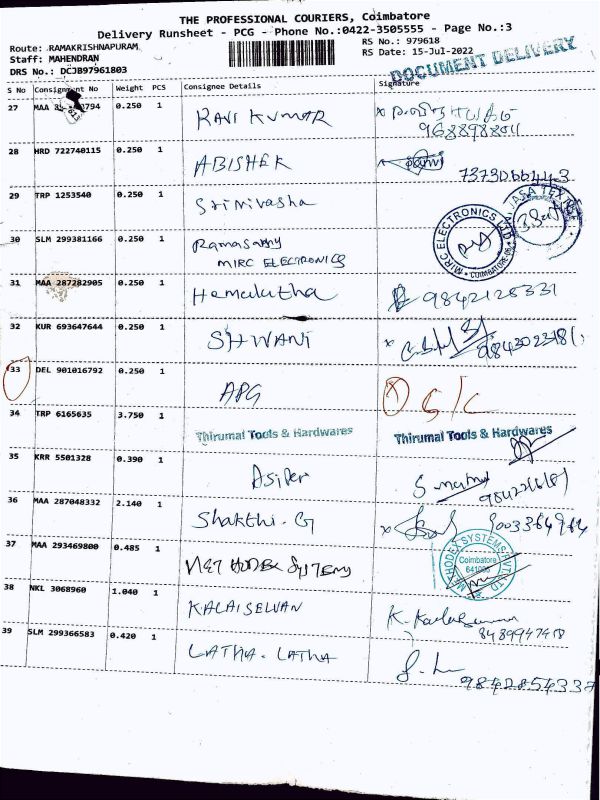 THE PROFESSIONAL COURIERS, Coimbatore
Delivery Runsheet - PCG - Phone No.:0422-3505555 - Page No.:3
Route: RAMAKRISHNAPURAM
RS No.: 979618
Staff: MAHENDRAN
RS Date: 15-Jul-2022
DRS No.: DCJB97961803
DOCUMENT DELIVERY
S No Consignment No Weight PCS Consignee Details Signature
27 MAA 0.250 1 RAVI KUMAR
28 HRD 722740115 0.250 1 ABISHEK
29 TRP 1253540 0.250 1 Srinivasha
30 SLM 299381166 0.250 1 Ramasamy
MIRC ELECTRONICS
MIRC ELECTRONICS COIMBATORE
31 MAA 287282905 0.250 1 Hemalatha 9842128331
32 KUR 693647644 0.250 1 SHWANI
33 DEL 901016792 0.250 1 APG
34 TRP 6165635 3.750 1 Thirumal Tools & Hardwares Thirumal Tools & Hardwares
35 KRR 5501328 0.390 1
36 MAA 287048332 2.140 1 Shakthi.G
37 MAA 293469800 0.485 1 METHODEX SYSTEMS
METHODEX SYSTEMS PVT LTD Coimbatore
38 NKL 3068960 1.040 1 KALAISELVAN
39 SLM 299366583 0.420 1 LATHA. LATHA
9842854337